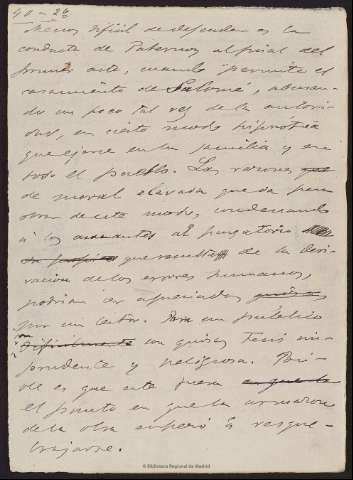 40 - 26
Menos difícil de defender es la
conducta de Paternoy al final del
primer acto, cuando permite el
casamiento de Salomé, abusan-
do un poco tal vez de la autori-
dad, en cierto modo hipnótica
que ejerce en la familia y en
todo el pueblo. Las razones que
de moral elevada que da para
obrar de este modo, condenando
á los amantes al purgatorio
que resulta de la deri-
vación de los errores humanos,
podrían ser apreciadas
por un lector. Para un público
son quizás tesis im-
prudente y peligrosa. Posi-
ble es que este fuera en que la
el punto en que la armazón
de la obra empezó á resque-
brajarse.
© Biblioteca Regional de Madrid